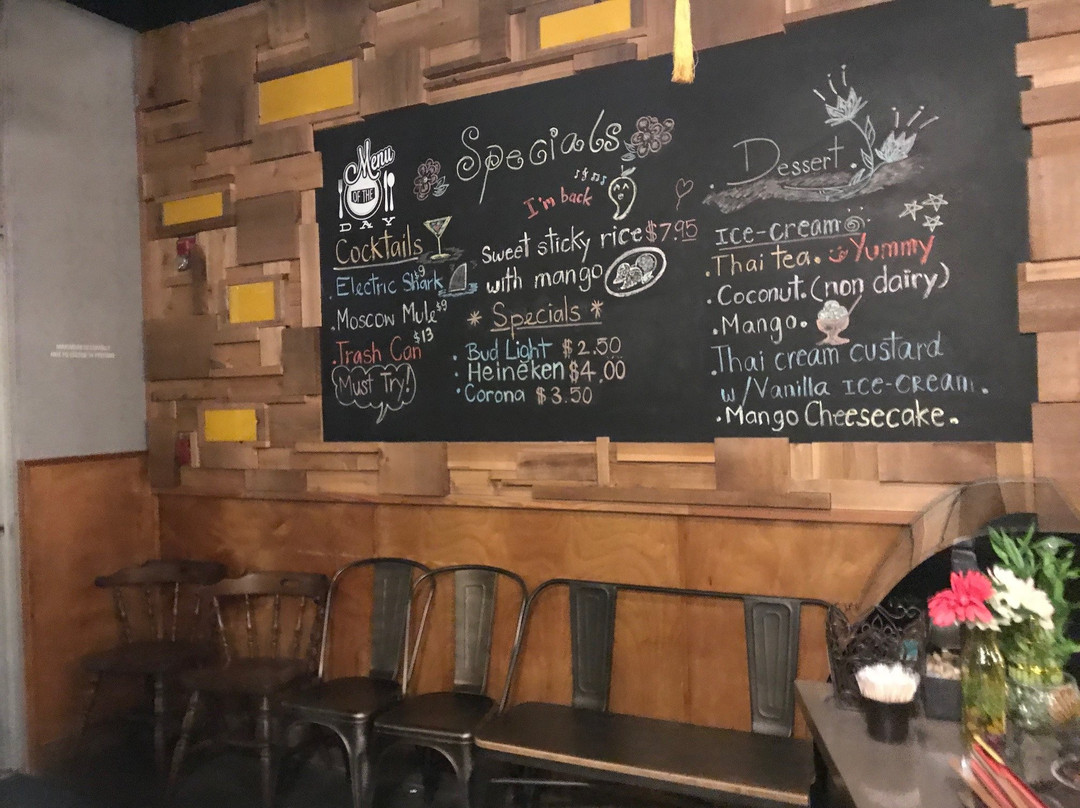 Menu
OF THE
DAY
Cocktails
. Electric Shark $9
. Moscow Mule $9
. Trash Can $13
Must Try!
Specials
I'm back
Sweet sticky rice $7.95
with mango
* Specials *
. Bud Light $2.50
. Heineken $4.00
. Corona $3.50
. Dessert.
Ice-cream
. Thai tea. Yummy
. Coconut. (non dairy)
. Mango.
Thai cream custard
w/Vanilla ICE-CREAM.
. Mango Cheesecake.